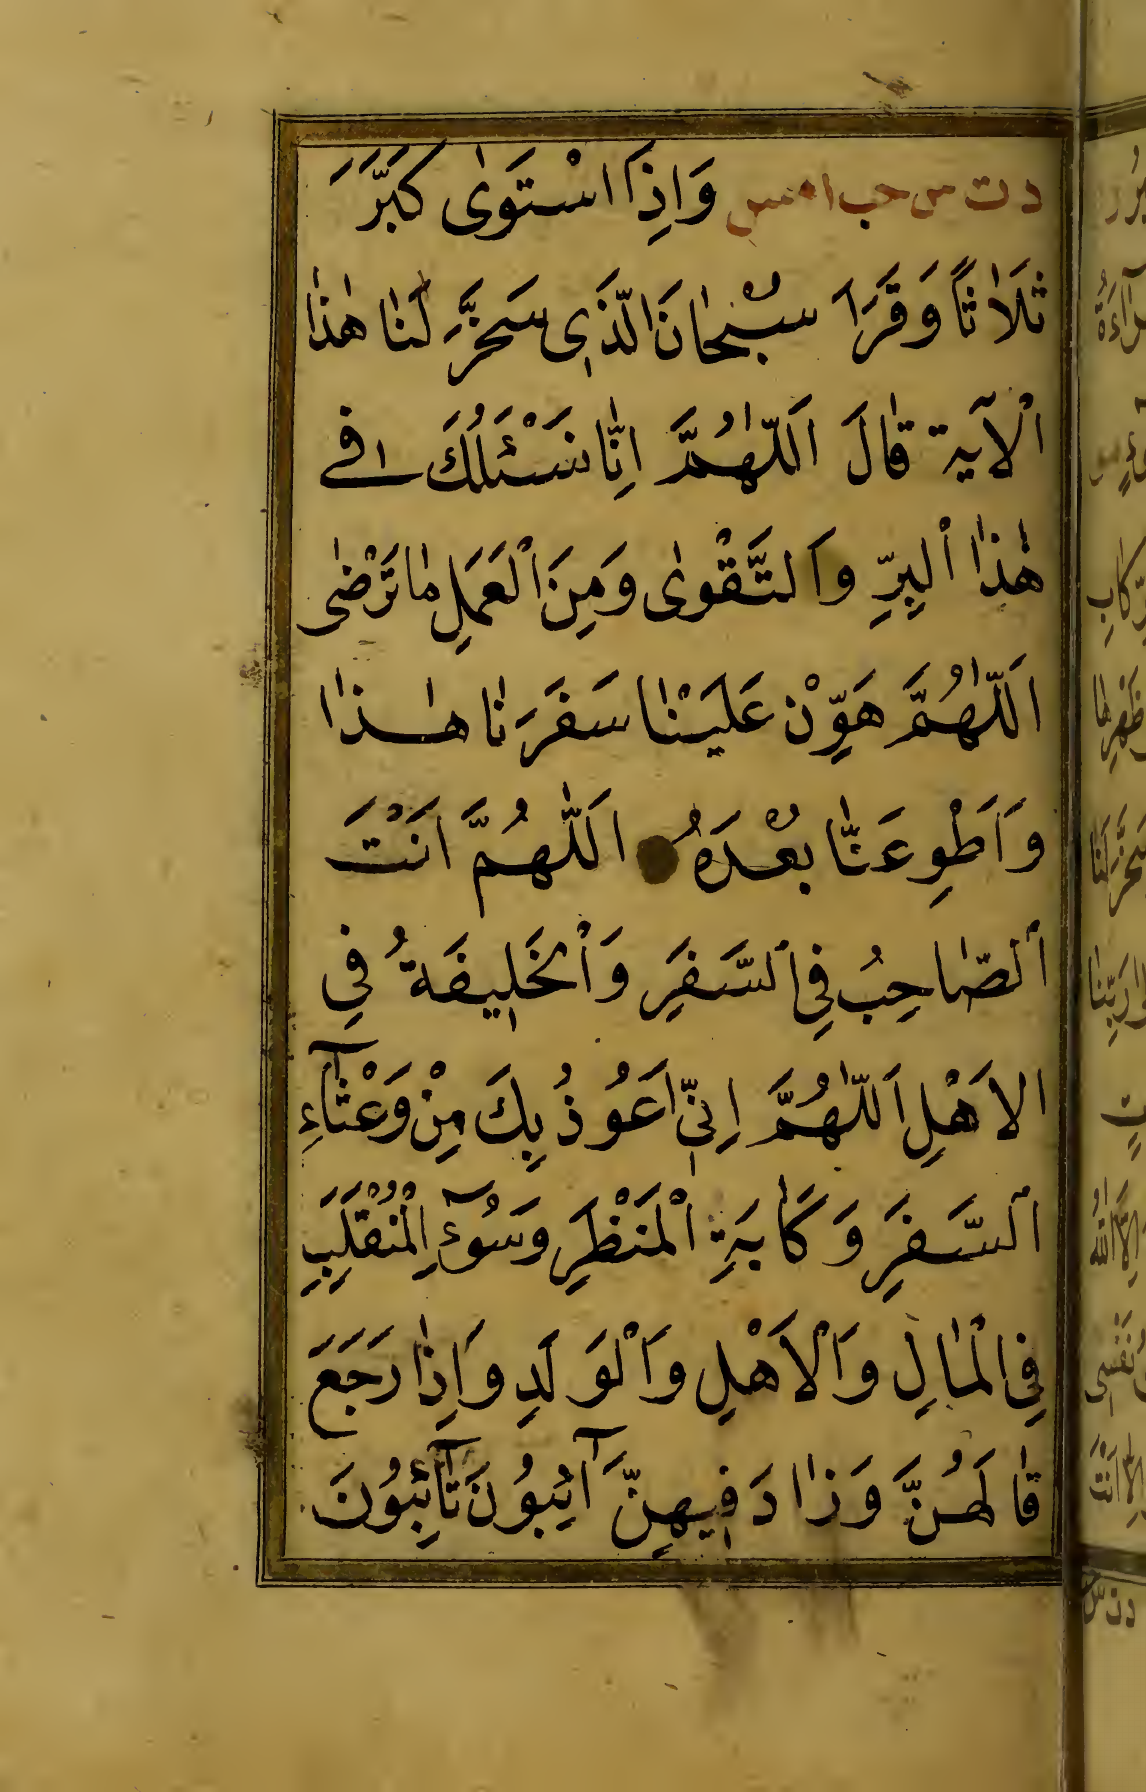 د ت س حب ا مس وَاِذَا اسْتَوٰى كَبَّرَ
ثَلَاثًا وَقَرَاَ سُبْحَانَ الَّذِى سَخَّرَ لَنٰا هٰذَا
اْلآية قٰالَ اَللّٰهُمَّ اِنّٰا نَسْئَلُكَ فے
هٰذَا اْلبِرِّ وَالتَّقْوٰى وَمِنَ اْلعَمَلِ مٰا تَرْضٰى
اَللّٰهُمَّ هَوِّنْ عَلَيْنٰا سَفَرَنٰا هٰذَا
وَاَطْوِ عَنّٰا بُعْدَهُ اَللّٰهُمَّ اَنْتَ
اْلصّٰاحِبُ فِى السَّفَرِ وَاْلخَلِيفَةُ فِى
الاَهْلِ اَللّٰهُمَّ اِنِّى اَعُوذُ بِكَ مِنْ وَعْثٰآءِ
اْلسَّفَرِ وَكَابَةِ اْلمَنْظَرِ وَسُوٓءِ اِلْمُنْقَلَبِ
فِى الْمٰالِ وَاْلاَهْلِ وَاْلوَلَدِ وَاِذٰا رَجَعَ
قٰالَهُنَّ وَزٰادَ فِيهِنَّ آئِبُونَ تٰآئِبُونَ